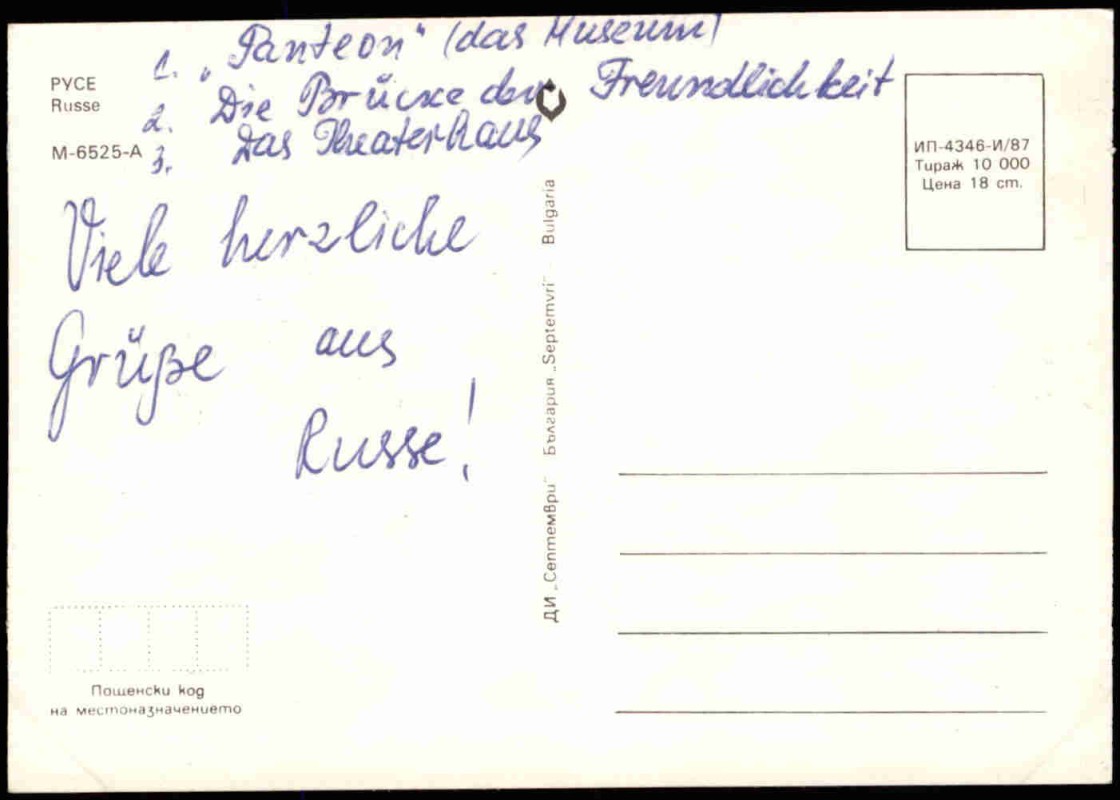 1. „Panteon" (das Museum)
РУСЕ
Russe
2. Die Brücke der Freundlichkeit
М-6525-А
3. Das Theaterhaus
Viele herzliche
Grüße aus
Russe!
ИП-4346-И/87
Тираж 10 000
Цена 18 ст.
ДИ „Септември" България „Septemvri" Bulgaria
Пощенски код
на местоназначението